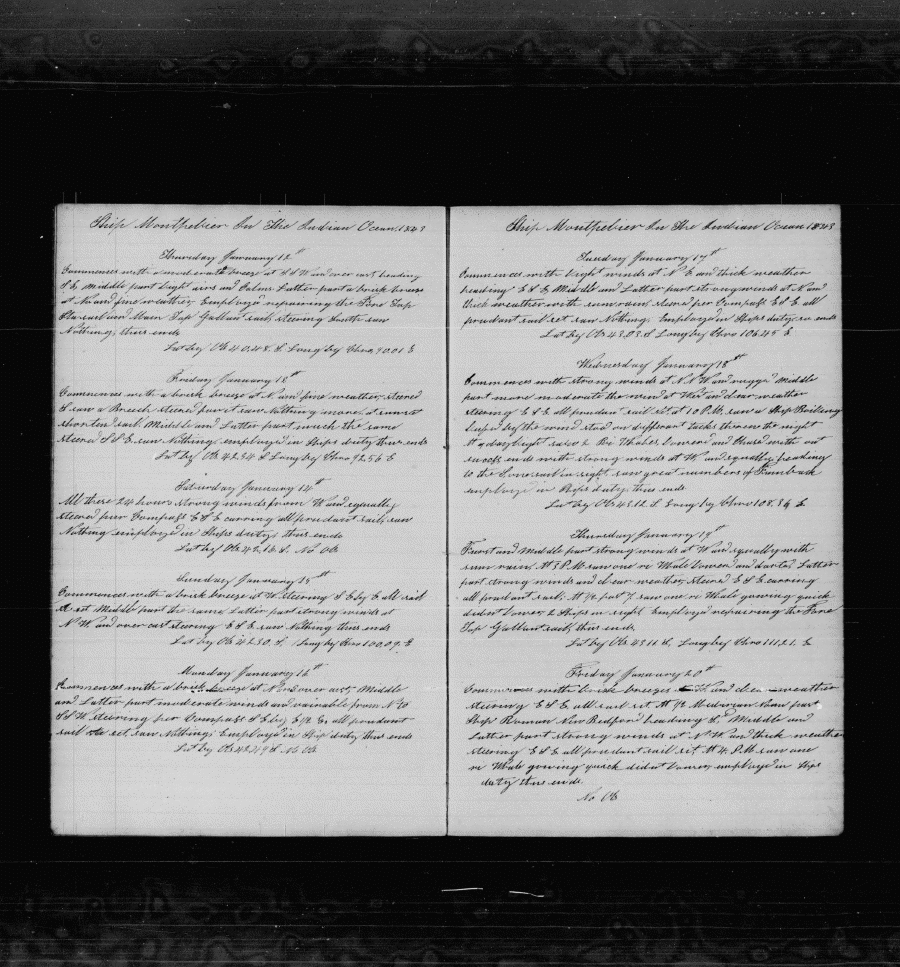 Ship Montpelier In The Indian Ocean 1843
Thursday January 12th
Commences with a moderate breeze at S S W and over cast heading
S E Middle part light airs and Calms Latter part a brisk breeze
at N and fine weather, Employd repairing the Fore Top
Main Top Gallant sail, steering South saw
Nothing, thus ends
Lat by Ob 40.48. S Long by Chro 90.01 E
Friday January 13th
Commences with a brisk breeze at N and fine weather, steered
S saw a Breech steered for it saw Nothing more, at sunset
shortened sail. Middle and Latter part much the same
steered S S E saw Nothing employd in Ships duty thus ends
Lat by Ob 42.34 S Long by Chro 92.56 E
Saturday January 14th
All these 24 hours strong winds from W and squally
steered per Compass E S E carring all prudant sail, saw
Nothing employd in Ships duty, thus ends
Lat by Ob 43.16 S. No Ob
Sunday January 15th
Commences with a brisk breeze at W. steering S E by E all sail
set Middle part the same Latter part strong winds at
N W. and over cast steering E S E saw Nothing thus ends
Lat by Ob 42.50. S. Long by Chro 100.09. E
Monday January 16th
Commences with a brisk breeze at N and over cast, Middle
and Latter part moderate winds and vairable from N to
S S W steering per Compass S E by E 1/2 E. all prudant
sail set saw Nothing. Employd in Ship duty thus ends
Lat by Ob 42.19 S No Ob
Ship Montpelier In The Indian Ocean 1843
Tuesday January 17th
Commences with light winds at N E and thick weather
heading E S E Middle and Latter part strong winds at N and
thick weather with sum rain steered per Compass E S E all
prudant sail set saw Nothing. Employd in Ships duty, so ends
Lat by Ob 43.03. S Long by Chro 106.45 E
Wednesday January 18th
Commences with strong winds at N N W and ruggd Middle
part more moderate the wind at West and clear weather
steering E S E all prudant sail set, at 10 P.M. saw a Ship
by the wind stood on different tacks threw the night
at daylight saw 2 Whales Lowerd and Chased with out
success ends with strong winds at W and squally heading
to the in sight, saw great numbers of Finnback
employd in Ships duty, thus ends
Lat by Ob 43.12 S Long by Chro 108.36 E.
Thursday January 19th
First and Middle part strong winds at W and squally with
sum rain. At 3 P.M. saw one Whale Lowerd and darted Latter
part strong winds and clear weather, steered E S E carring
all prudant sail. At 1/2 past 7 saw one Whale gowing quick
did not Lower, 2 Ships in sight Employd repairing the Fore
Top Gallant sail, thus ends
Lat by Ob 43.11 S. Long by Chro 111.21. E
Friday January 20th
Commences with brisk breezes W and clear weather
steering E S E all sail set At 1/2 Meridian past
Ship Roman New Bedford heading S. Middle and
Latter part strong winds at N.W. and thick weather
steering E S E all prudant sail set At 4 P.M. saw one
Whale gowing quick did not Lower, employd in Ships
duty thus ends
No Ob